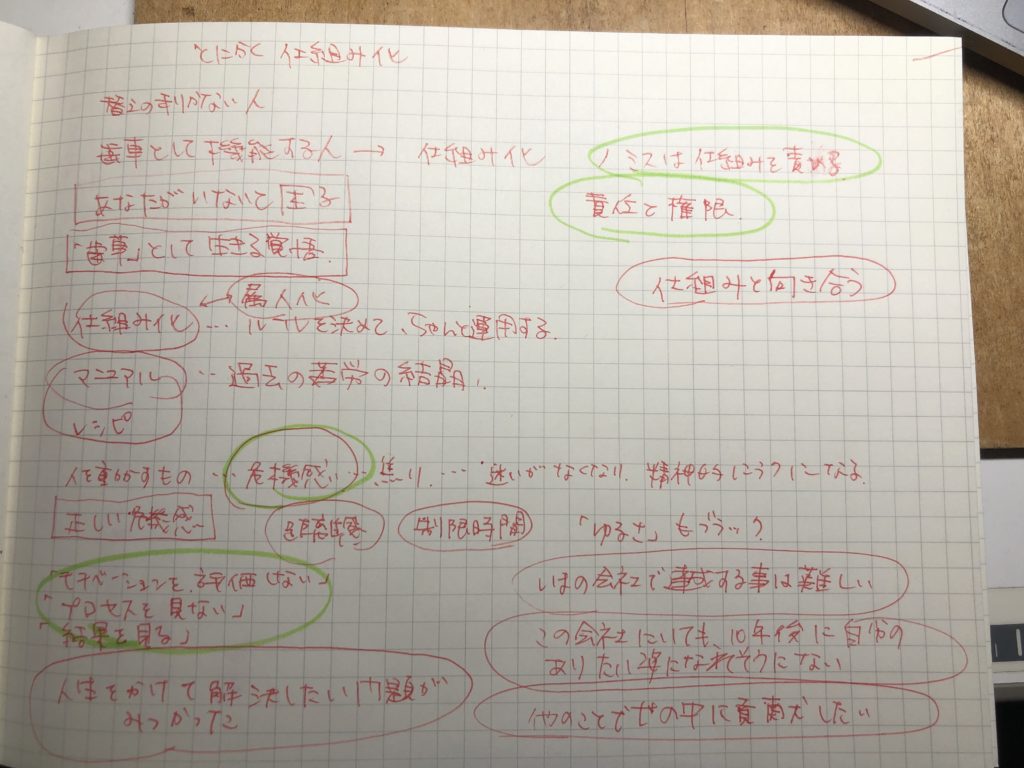 とにかく 仕組み化
替えのきかない人
歯車として機能する人 → 仕組み化
ミスは仕組みを責める
あなたがいないと困る
責任と権限.
「歯車」として生きる覚悟.
仕組みと向き合う
↔ 属人化
仕組み化 … ルールを決めて、ちゃんと運用する.
マニュアル … 過去の苦労の結晶.
レシピ
人を動かすもの … 危機感 … 焦り … 迷いがなくなり、精神的にらくになる.
正しい危機感
距離感
制限時間
「ゆるさ」もブラック?
「モチベーションを、評価しない」
「プロセスを見ない」
「結果を見る」
いまの会社で達成する事は難しい
この会社にいても、10年後に自分の
ありたい姿になれてそうにない
人生をかけて解決したい問題が
みつかった
他のことで世の中に貢献したい